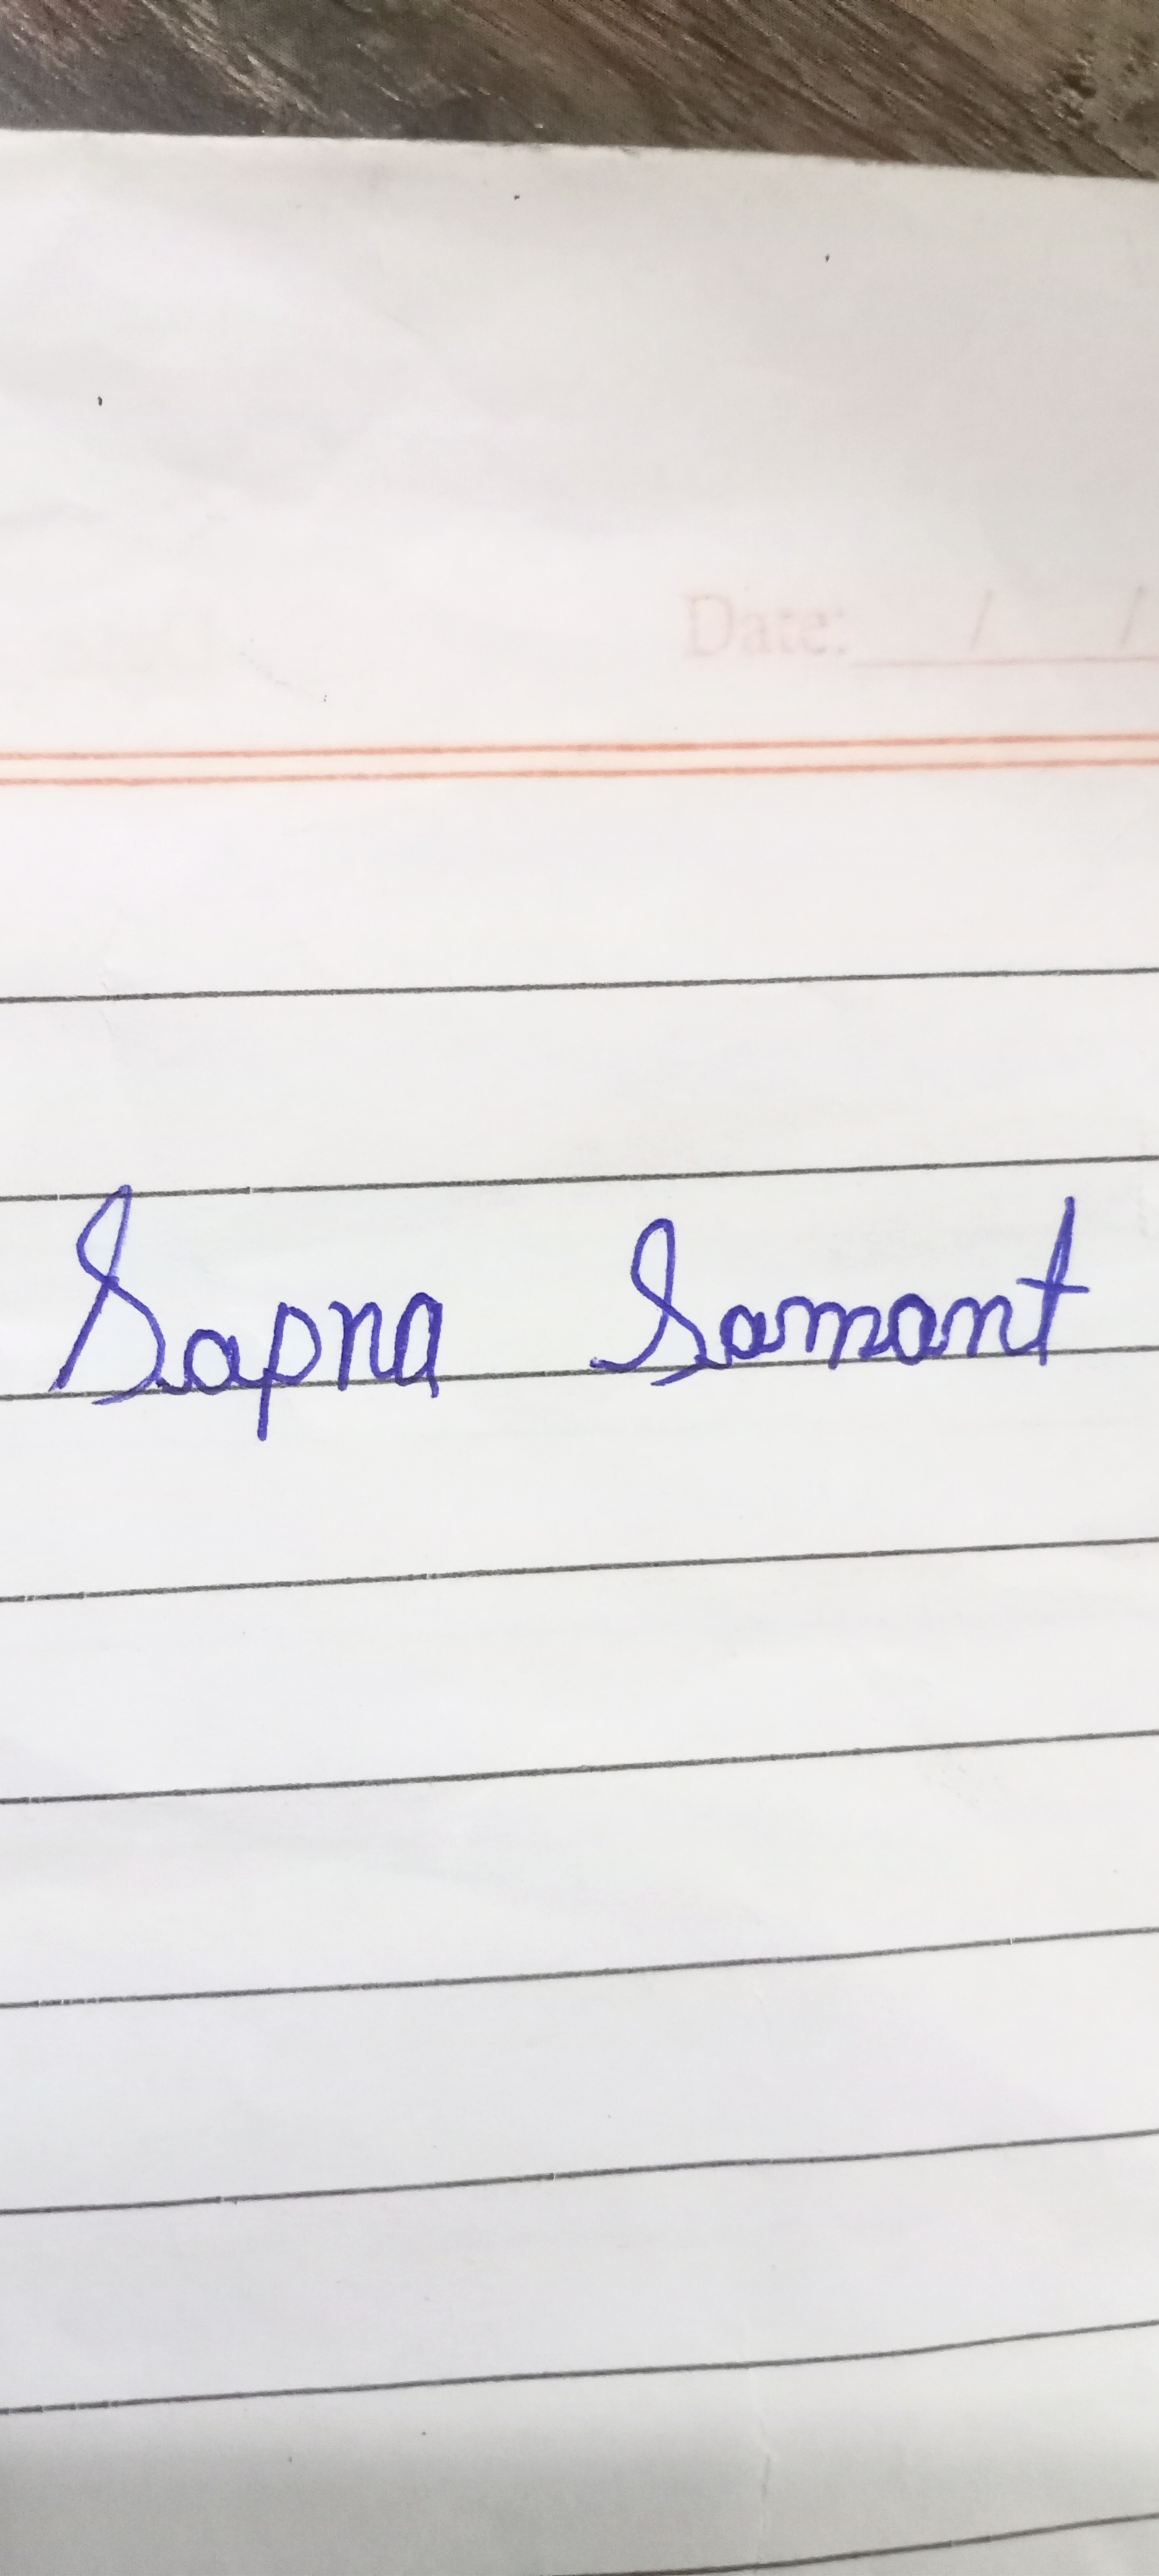 Date: / /
Sapna Samant